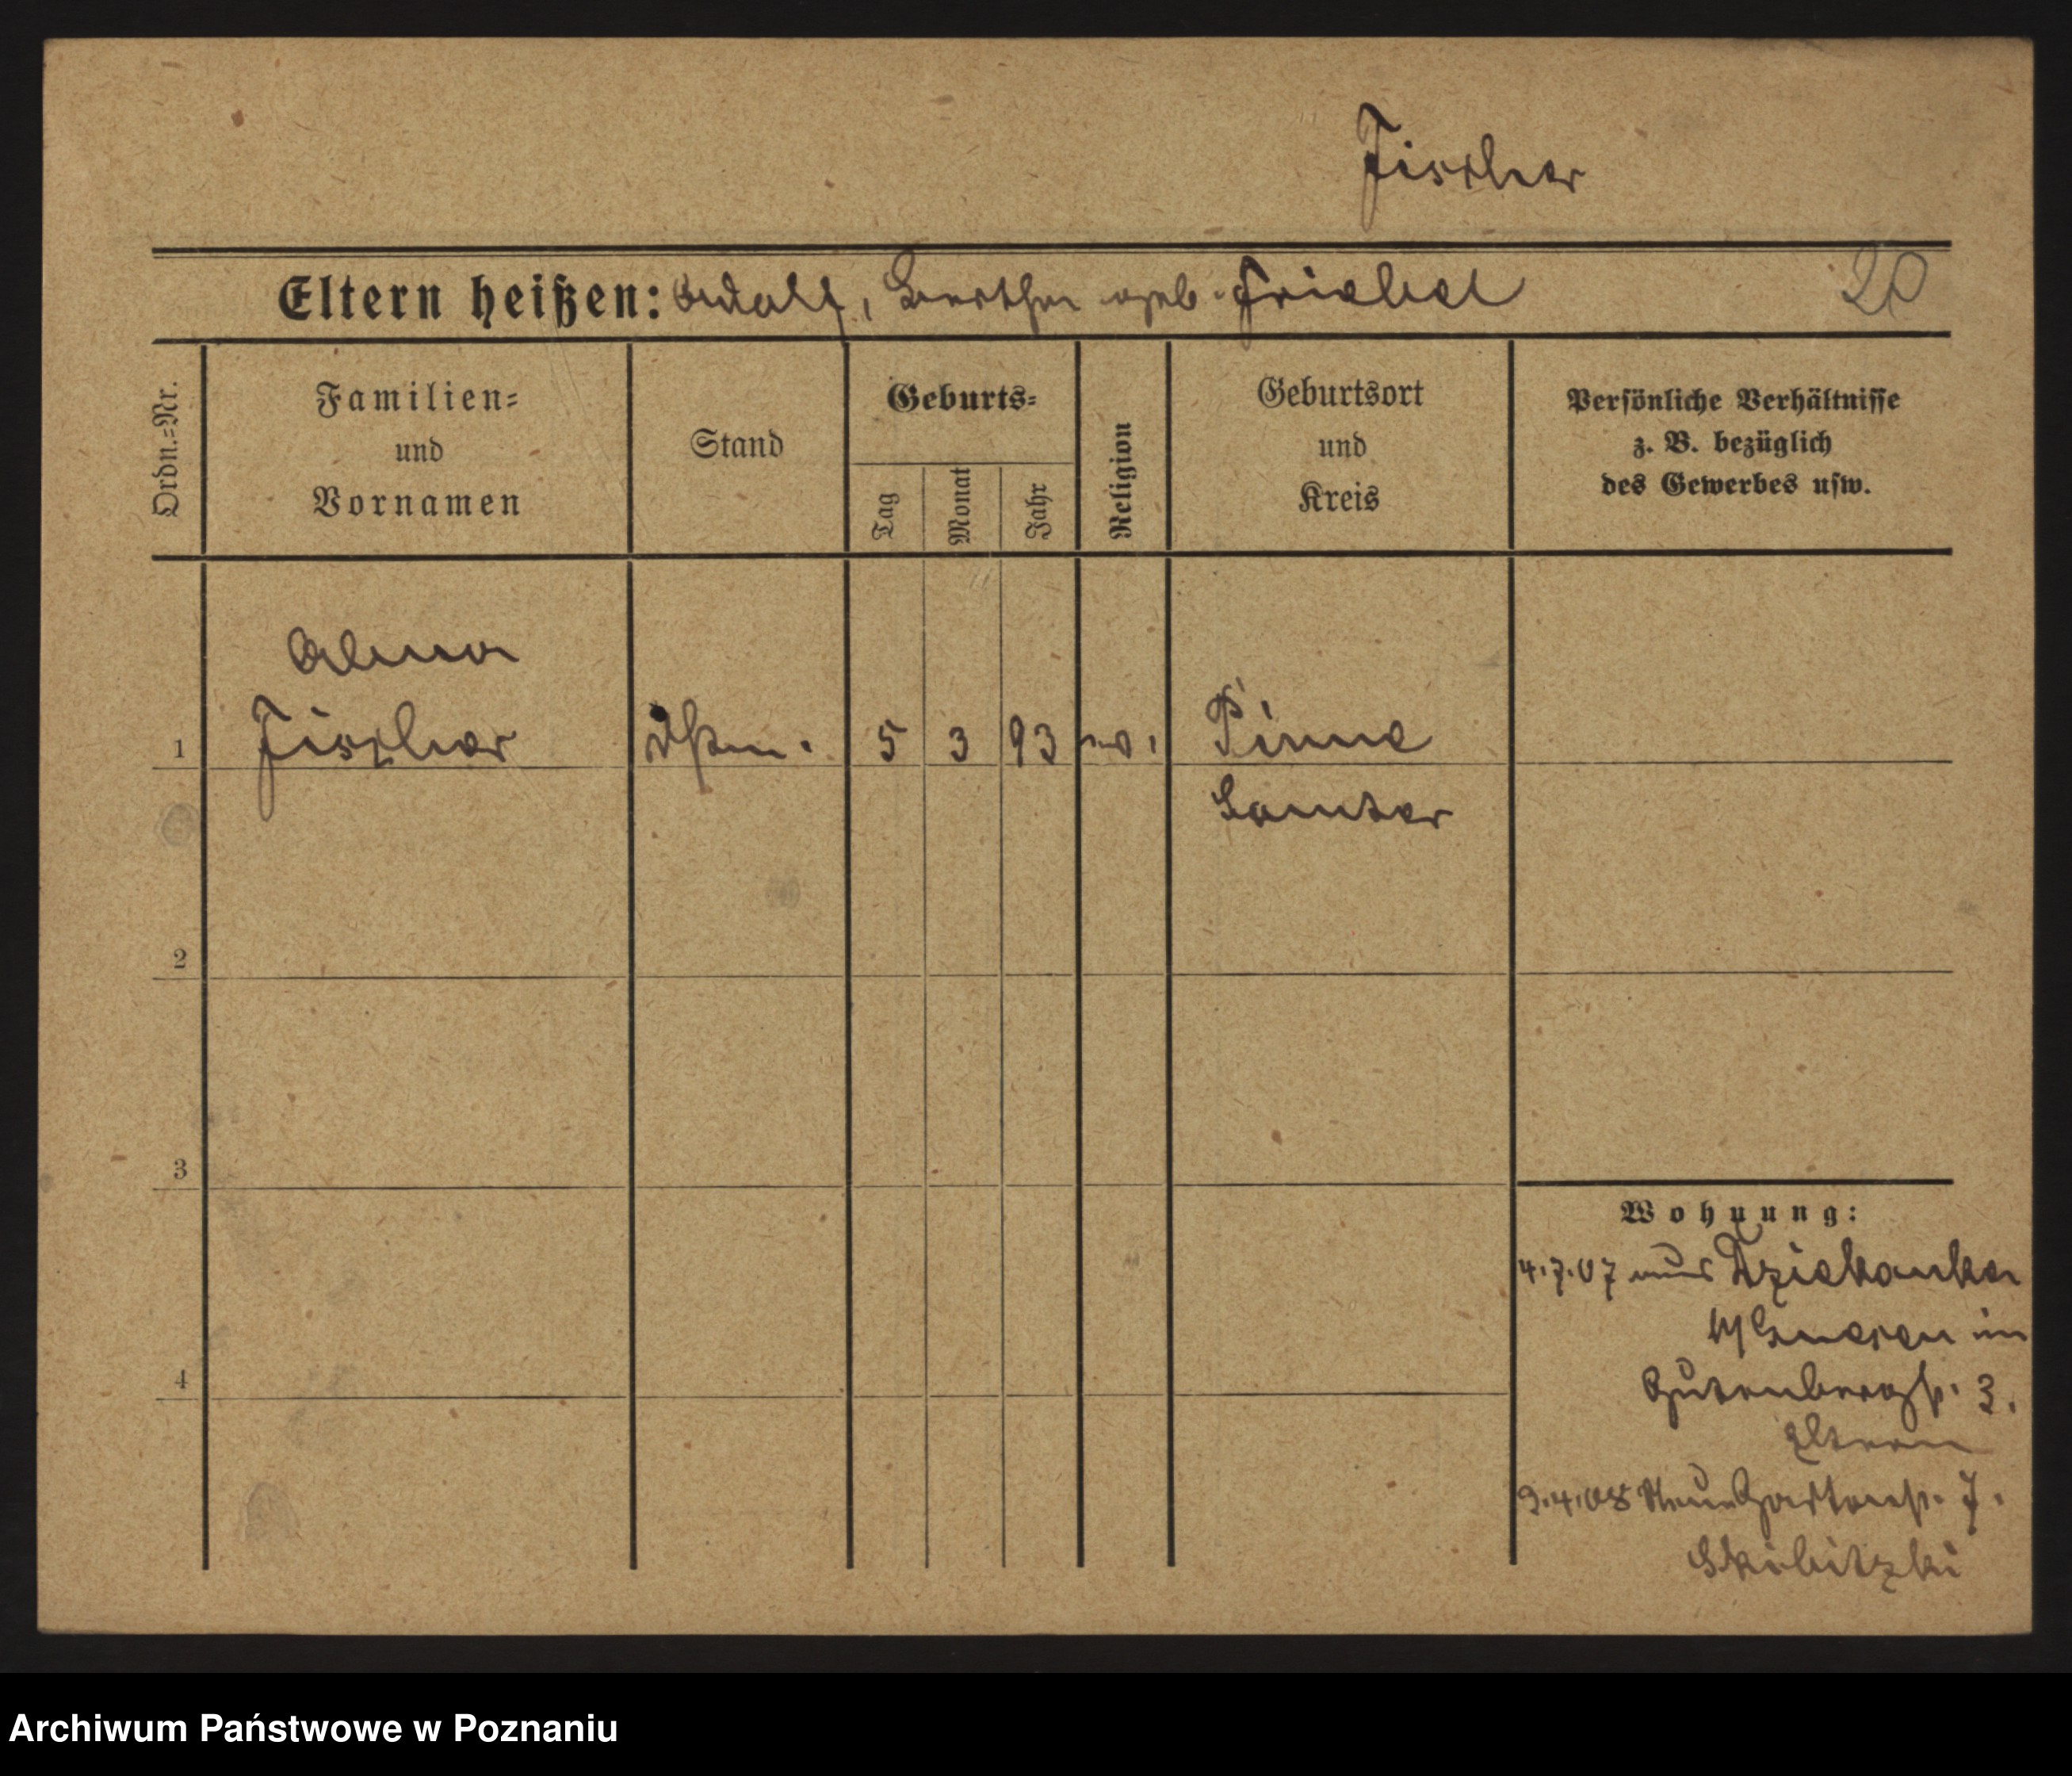 Fischer
Eltern heißen: Adolf, Bertha geb. Friebel
20
Ordn.=Nr.
Familien=
und
Vornamen
Stand
Geburts=
Tag
Monat
Jahr
Religion
Geburtsort
und
Kreis
Persönliche Verhältnisse
z. B. bezüglich
des Gewerbes usw.
Alma
1 Fischer 5 3 93 ev. Pinne
Samter
2
3
4
Wohnung:
4.7.07 aus Dziekanka
b/Gnesen in
Gutenbergstr. 3.
Eltern
9.4.08 Neue Gartenstr. 7.
Skibitzki
Archiwum Państwowe w Poznaniu